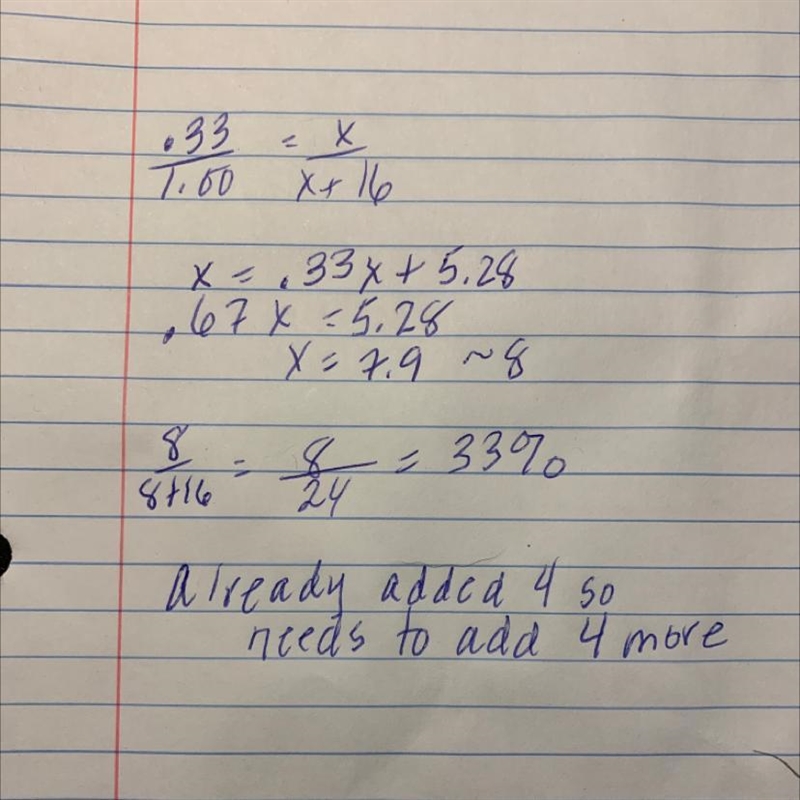 .33/1.00 = x/x+16
x = .33x + 5.28
.67x = 5.28
x = 7.9 ~8
8/8+16 = 8/24 = 33%
Already added 4 so
needs to add 4 more